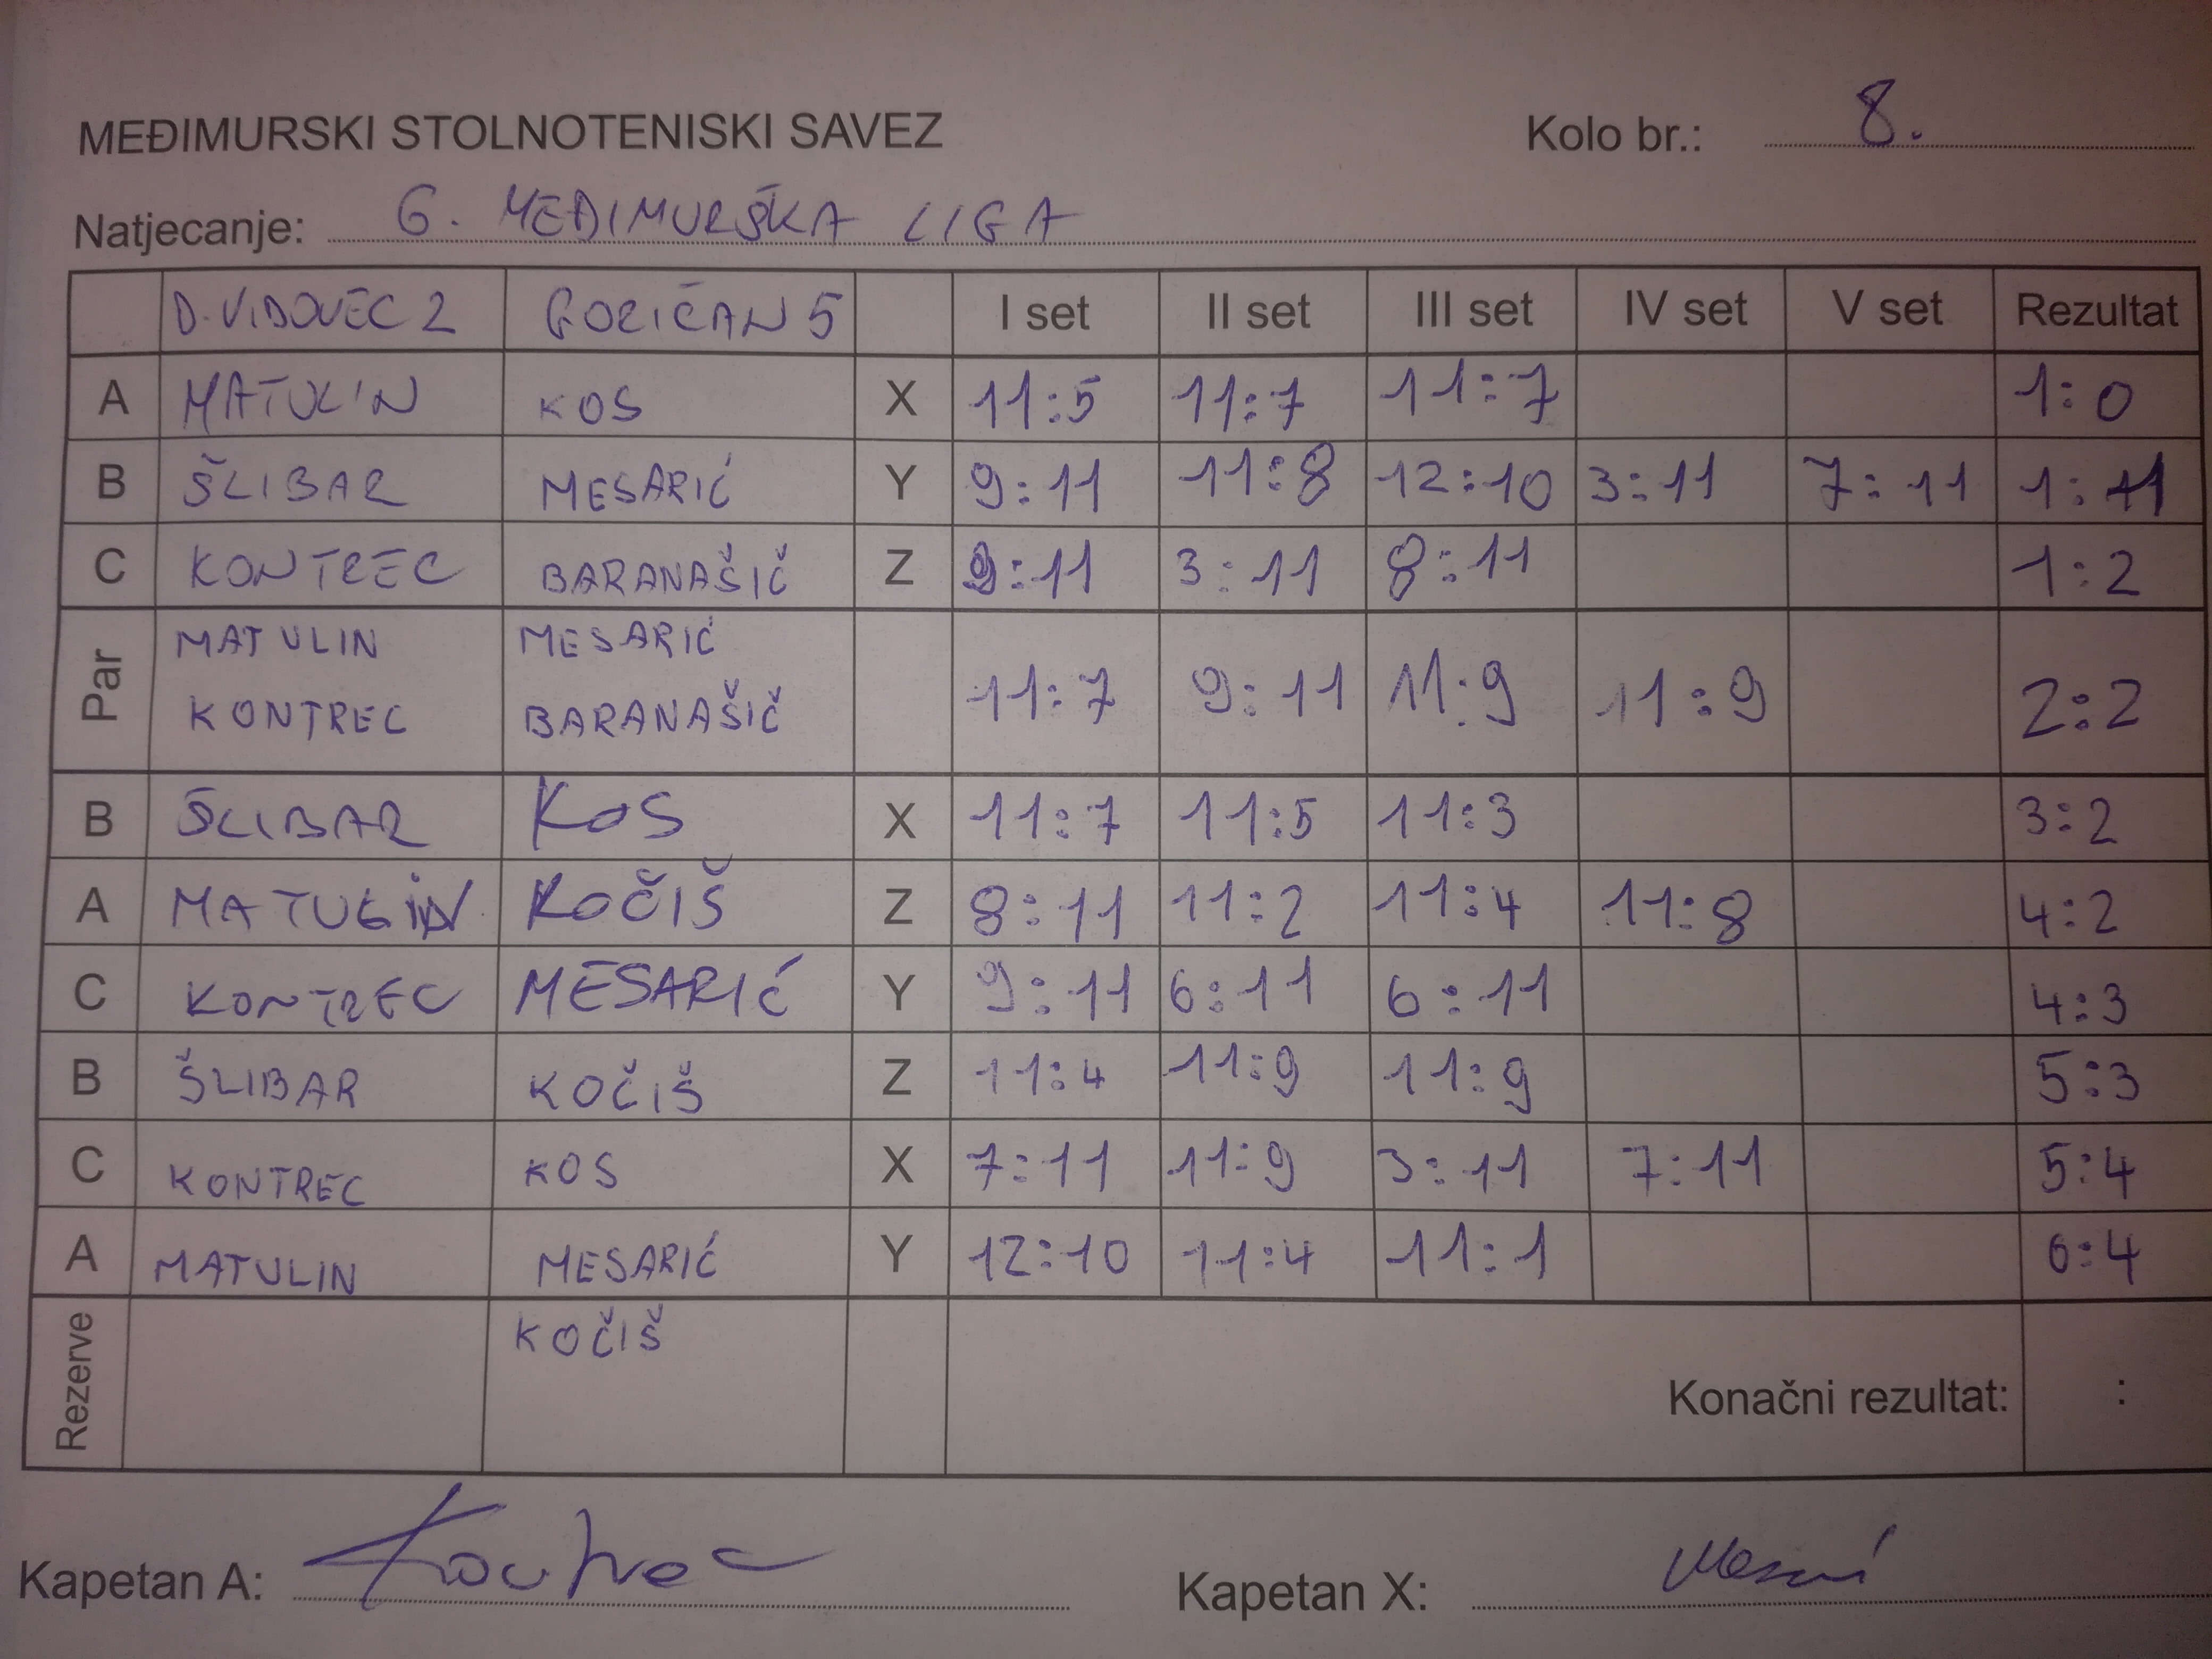 MEĐIMURSKI STOLNOTENISKI SAVEZ Kolo br.: 8.
Natjecanje: 6. MEĐIMURŠKA LIGA
D. VIDOVEC 2 GORIČAN 5 I set II set III set IV set V set Rezultat
A MATULIN KOS X 11:5 11:7 11:7 1:0
B ŠLIBAR MESARIĆ Y 9:11 11:8 12:10 3:11 7:11 1:1
C KONTREC BARANAŠIČ Z 9:11 3:11 8:11 1:2
Par MATULIN MESARIĆ
KONTREC BARANAŠIČ 11:7 9:11 11:9 11:9 2:2
B ŠLIBAR KOS X 11:7 11:5 11:3 3:2
A MATULIN KOČIŠ Z 8:11 11:2 11:4 11:8 4:2
C KONTREC MESARIĆ Y 9:11 6:11 6:11 4:3
B ŠLIBAR KOČIŠ Z 11:4 11:9 11:9 5:3
C KONTREC KOS X 7:11 11:9 3:11 7:11 5:4
A MATULIN MESARIĆ Y 12:10 11:4 11:1 6:4
Rezerve KOČIŠ
Konačni rezultat: :
Kapetan A: Kontrec Kapetan X: